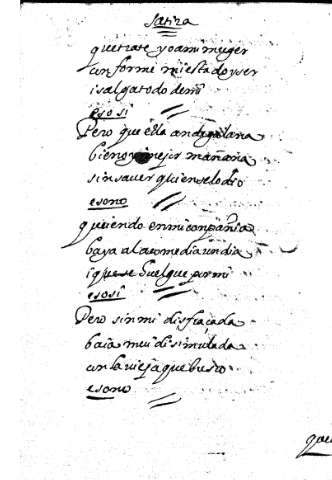 satira
que trate yo a mi muger
conforme mi estado y ser
i salga todo de mi
eso si
Pero que ella ande galana
bien oy mejor mañana
sin saver quien se lo dio
eso no
que iendo en mi conpañia
baya a la comedia un dia
i que se huelgue por mi
eso si
Pero sin mi disfraçada
baia mui disimulada
con la vieja que busco
eso no
que